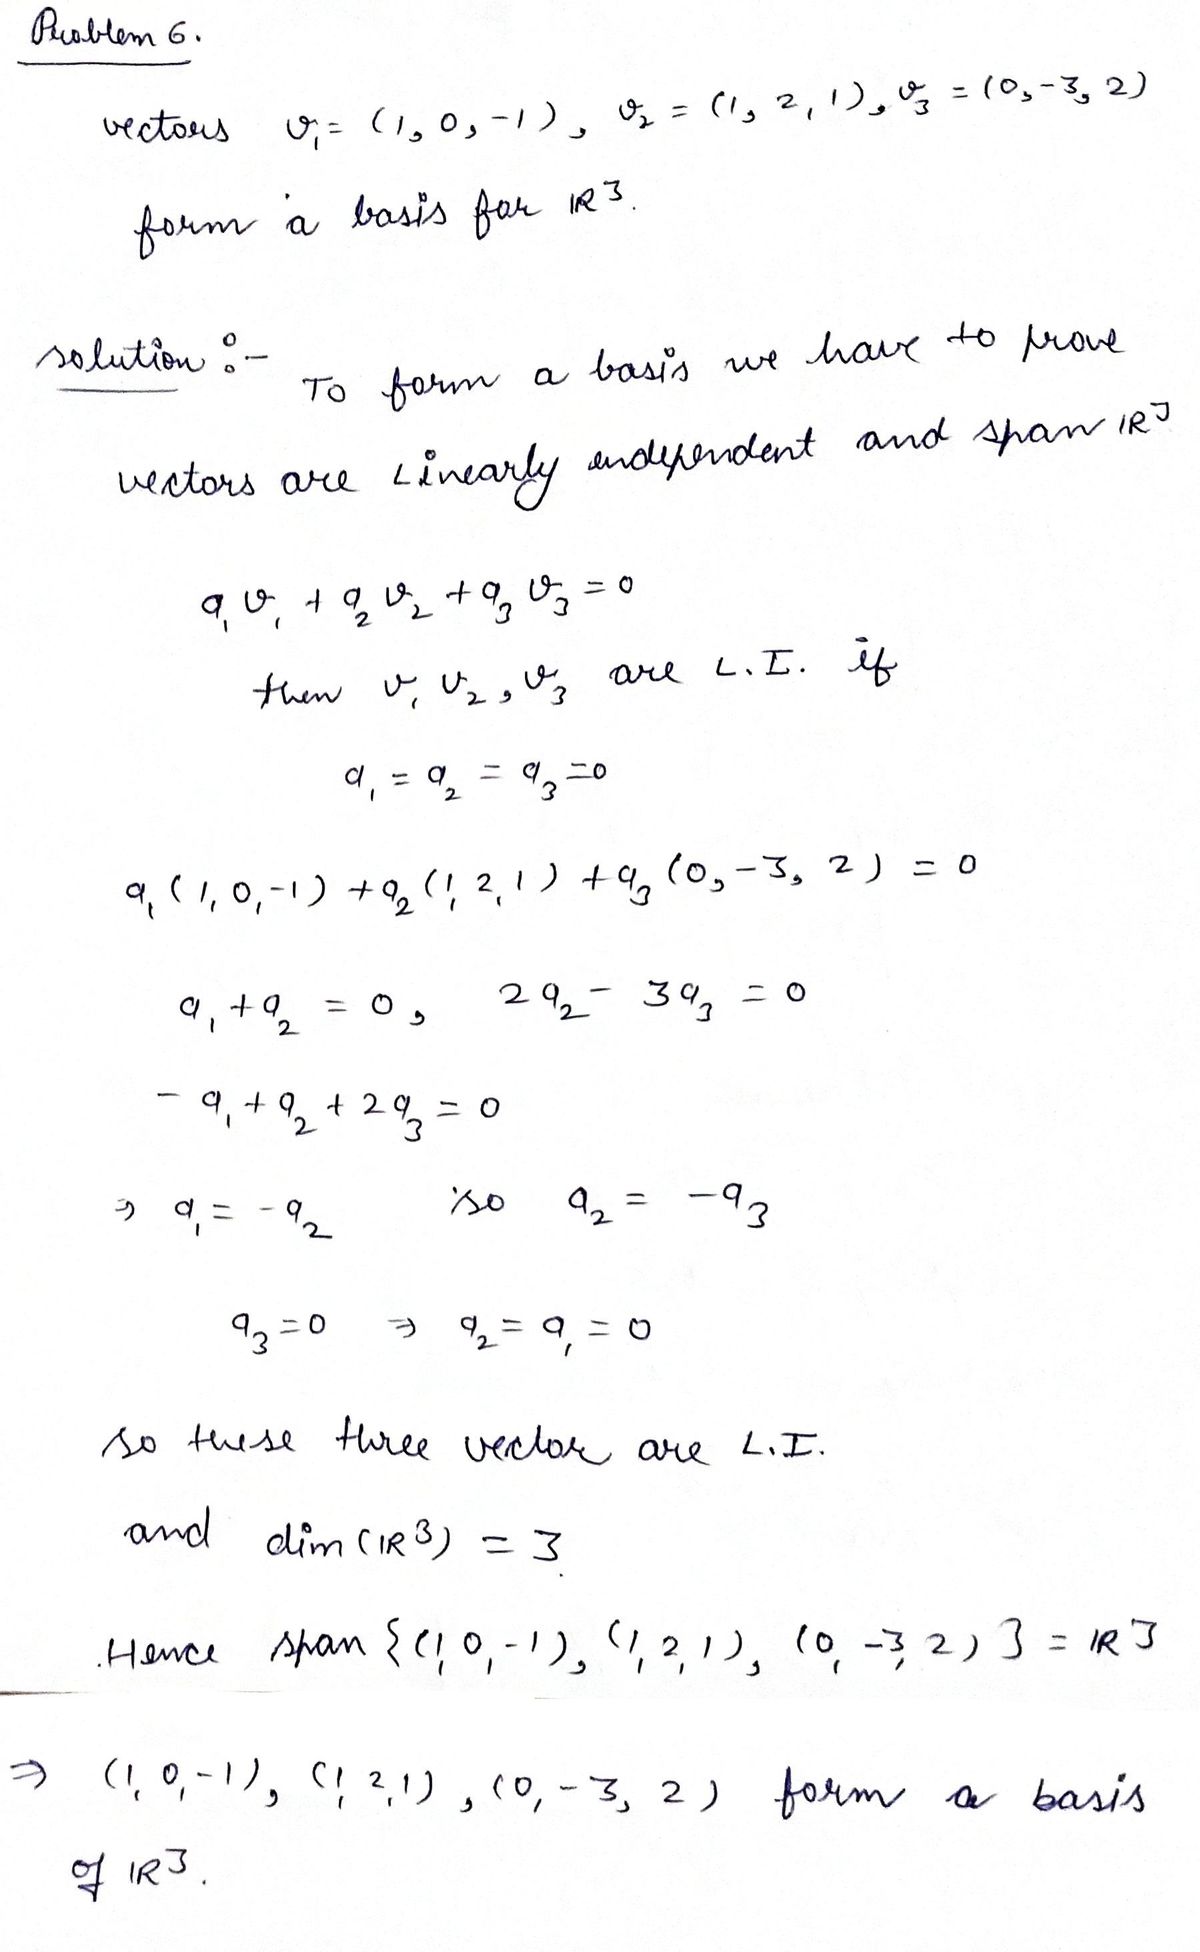 Problem 6.
vectors v₁ = (1, 0, -1), v₂ = (1, 2, 1), v₃ = (0, -3, 2)
form a basis for ℝ³.
solution :-
To form a basis we have to prove
vectors are Linearly independent and span ℝ³
a₁v₁ + a₂v₂ + a₃v₃ = 0
then v₁ v₂, v₃ are L.I. if
a₁ = a₂ = a₃ = 0
a₁(1, 0, -1) + a₂(1, 2, 1) + a₃(0, -3, 2) = 0
a₁ + a₂ = 0, 2a₂ - 3a₃ = 0
- a₁ + a₂ + 2a₃ = 0
⇒ a₁ = -a₂ so a₂ = -a₃
a₃ = 0 ⇒ a₂ = a₁ = 0
so these three vector are L.I.
and dim(ℝ³) = 3
Hence span {(1, 0, -1), (1, 2, 1), (0, -3, 2)} = ℝ³
⇒ (1, 0, -1), (1, 2, 1), (0, -3, 2) form a basis
of ℝ³.